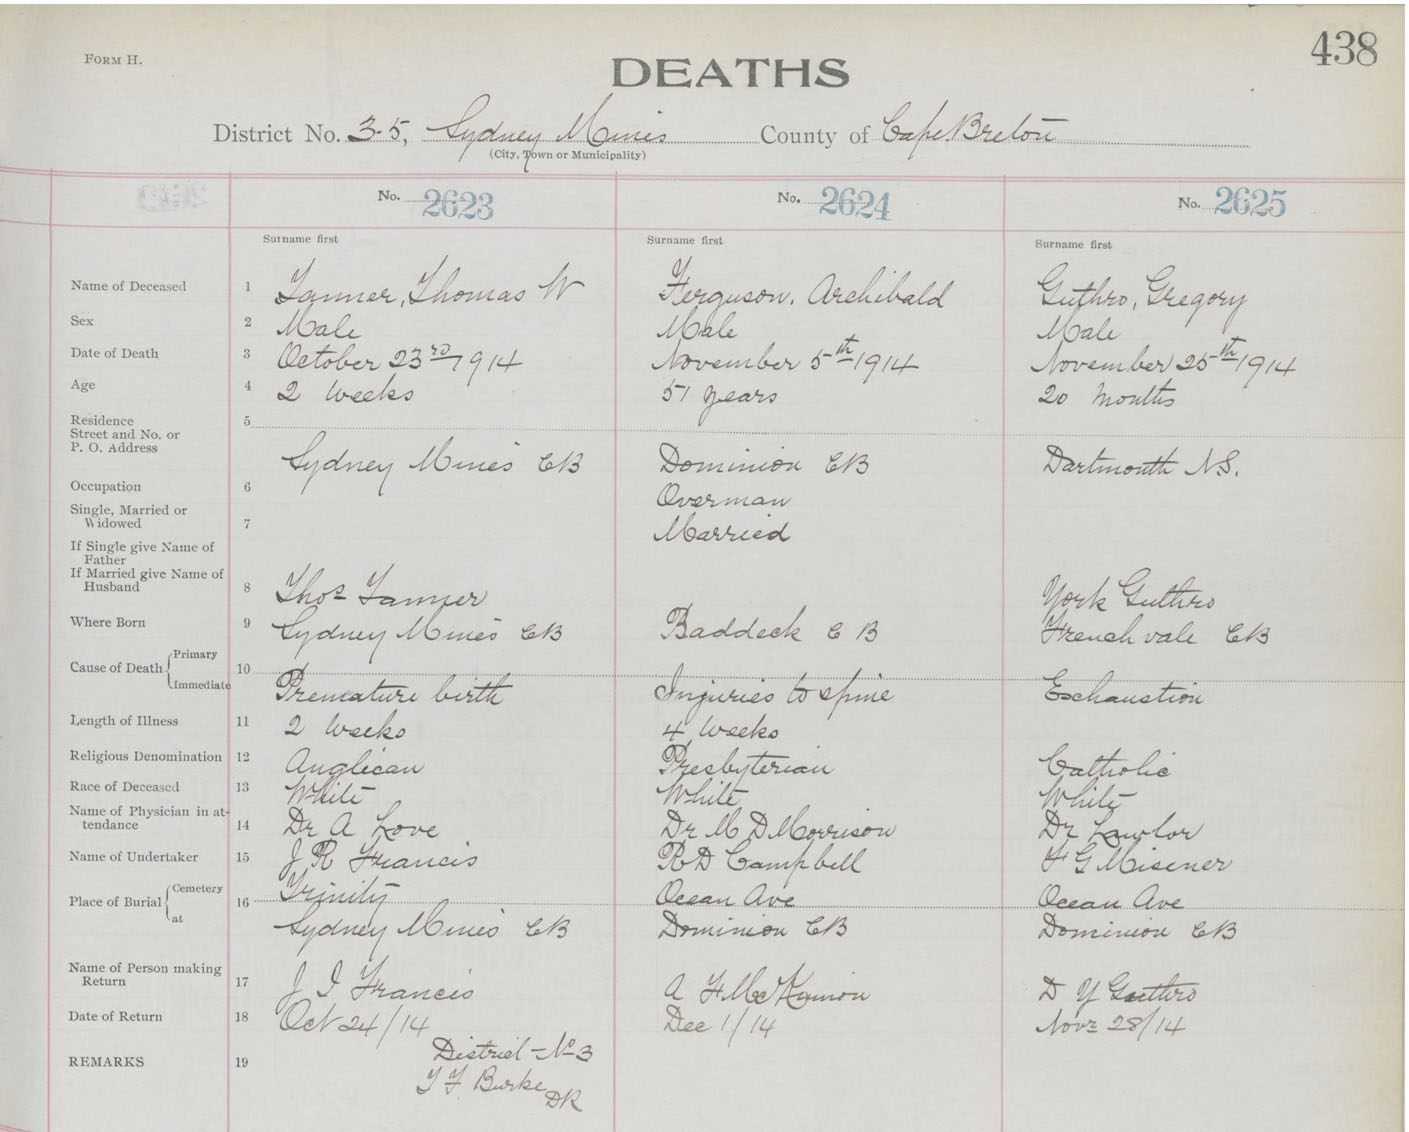 438
FORM H.
DEATHS
District No. 3-5, Sydney Mines County of Cape Breton
(City, Town or Municipality)
No. 2623 No. 2624 No. 2625
Surname first Surname first Surname first
Name of Deceased 1 Tanner, Thomas W Ferguson, Archibald Guthro, Gregory
Sex 2 Male Male Male
Date of Death 3 October 23rd 1914 November 5th 1914 November 25th 1914
Age 4 2 weeks 51 years 20 months
Residence 5
Street and No. or
P. O. Address Sydney Mines CB Dominion CB Dartmouth N.S.
Occupation 6 Overman
Single, Married or
Widowed 7 Married
If Single give Name of
Father
If Married give Name of
Husband 8 Thos Tanner York Guthro
Where Born 9 Sydney Mines CB Baddeck C B Frenchvale CB
Cause of Death Primary 10
Immediate Premature birth Injuries to spine Exchaustion
Length of Illness 11 2 weeks 4 weeks
Religious Denomination 12 Anglican Presbyterian Catholic
Race of Deceased 13 White White White
Name of Physician in at-
tendance 14 Dr A Love Dr M D Morrison Dr Lawlor
Name of Undertaker 15 J R Francis R D Campbell F G Misener
Place of Burial Cemetery 16 Trinity Ocean Ave Ocean Ave
at Sydney Mines CB Dominion CB Dominion CB
Name of Person making
Return 17 J I Francis A F McKinnon D Y Guthro
Date of Return 18 Oct 24/14 Dec 1/14 Novr 28/14
REMARKS 19 District No 3
T F Burke
DR